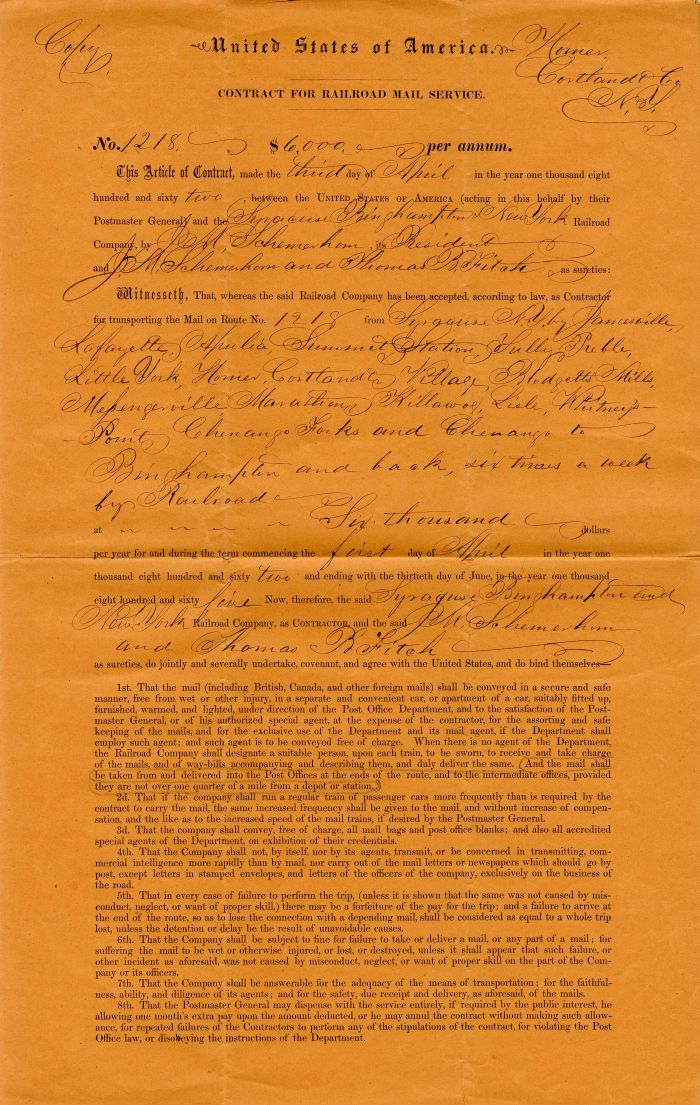 Copy
United States of America.
Homer,
Cortland Co
N.Y.
CONTRACT FOR RAILROAD MAIL SERVICE.
No. 1218. $6,000. per annum.
This Article of Contract, made the third day of April in the year one thousand eight
hundred and sixty two, between the UNITED STATES OF AMERICA (acting in this behalf by their
Postmaster General) and the Syracuse Binghampton & New York Railroad
Company, by J. M. Schemerhorn, its President
and J. M. Schemerhorn and Thomas B Fitch as sureties:
Witnesseth, That, whereas the said Railroad Company has been accepted, according to law, as Contractor
for transporting the Mail on Route No. 1218 from Syracuse N.Y. by Jamesville,
Lafayette, Apulia, Summit Station, Tully, Preble,
Little York, Homer, Cortland Village, Blodgetts Mills,
Messengerville Marathon, Killawog, Lisle, Whitney's
Point, Chenango Forks and Chenango to
Binghampton and back, six times a week
by Railroad
at Six thousand dollars
per year for and during the term commencing the first day of April in the year one
thousand eight hundred and sixty two and ending with the thirtieth day of June, in the year one thousand
eight hundred and sixty five Now, therefore, the said Syracuse Binghampton and
New York Railroad Company, as CONTRACTOR, and the said J. M. Schemerhorn
and Thomas B Fitch
as sureties, do jointly and severally undertake, covenant, and agree with the United States, and do bind themselves—
1st. That the mail (including British, Canada, and other foreign mails) shall be conveyed in a secure and safe
manner, free from wet or other injury, in a separate and convenient car, or apartment of a car, suitably fitted up,
furnished, warmed, and lighted, under direction of the Post Office Department, and to the satisfaction of the Post-
master General, or of his authorized special agent, at the expense of the contractor, for the assorting and safe
keeping of the mails, and for the exclusive use of the Department and its mail agent, if the Department shall
employ such agent; and such agent is to be conveyed free of charge. When there is no agent of the Department,
the Railroad Company shall designate a suitable person, upon each train, to be sworn, to receive and take charge
of the mails, and of way-bills accompanying and describing them, and duly deliver the same. (And the mail shall
be taken from and delivered into the Post Offices at the ends of the route, and to the intermediate offices, provided
they are not over one quarter of a mile from a depot or station.)
2d. That if the company shall run a regular train of passenger cars more frequently than is required by the
contract to carry the mail, the same increased frequency shall be given to the mail, and without increase of compen-
sation, and the like as to the increased speed of the mail trains, if desired by the Postmaster General.
3d. That the company shall convey, free of charge, all mail bags and post office blanks; and also all accredited
special agents of the Department, on exhibition of their credentials.
4th. That the Company shall not, by itself, nor by its agents, transmit, or be concerned in transmitting, com-
mercial intelligence more rapidly than by mail, nor carry out of the mail letters or newspapers which should go by
post, except letters in stamped envelopes, and letters of the officers of the company, exclusively on the business of
the road.
5th. That in every case of failure to perform the trip, (unless it is shown that the same was not caused by mis-
conduct, neglect, or want of proper skill,) there may be a forfeiture of the pay for the trip; and a failure to arrive
at the end of the route, so as to lose the connection with a depending mail, shall be considered as equal to a whole trip
lost, unless the detention or delay be the result of unavoidable causes.
6th. That the Company shall be subject to fine for failure to take or deliver a mail, or any part of a mail; for
suffering the mail to be wet or otherwise injured, or lost, or destroyed, unless it shall appear that such failure, or
other incident as aforesaid, was not caused by misconduct, neglect, or want of proper skill on the part of the Com-
pany or its officers.
7th. That the Company shall be answerable for the adequacy of the means of transportation; for the faithful-
ness, ability, and diligence of its agents; and for the safety, due receipt and delivery, as aforesaid, of the mails.
8th. That the Postmaster General may dispense with the service entirely, if required by the public interest, he
allowing one month's extra pay upon the amount deducted, or he may annul the contract without making such allow-
ance, for repeated failures of the Contractors to perform any of the stipulations of the contract, for violating the Post
Office law, or disobeying the instructions of the Department.